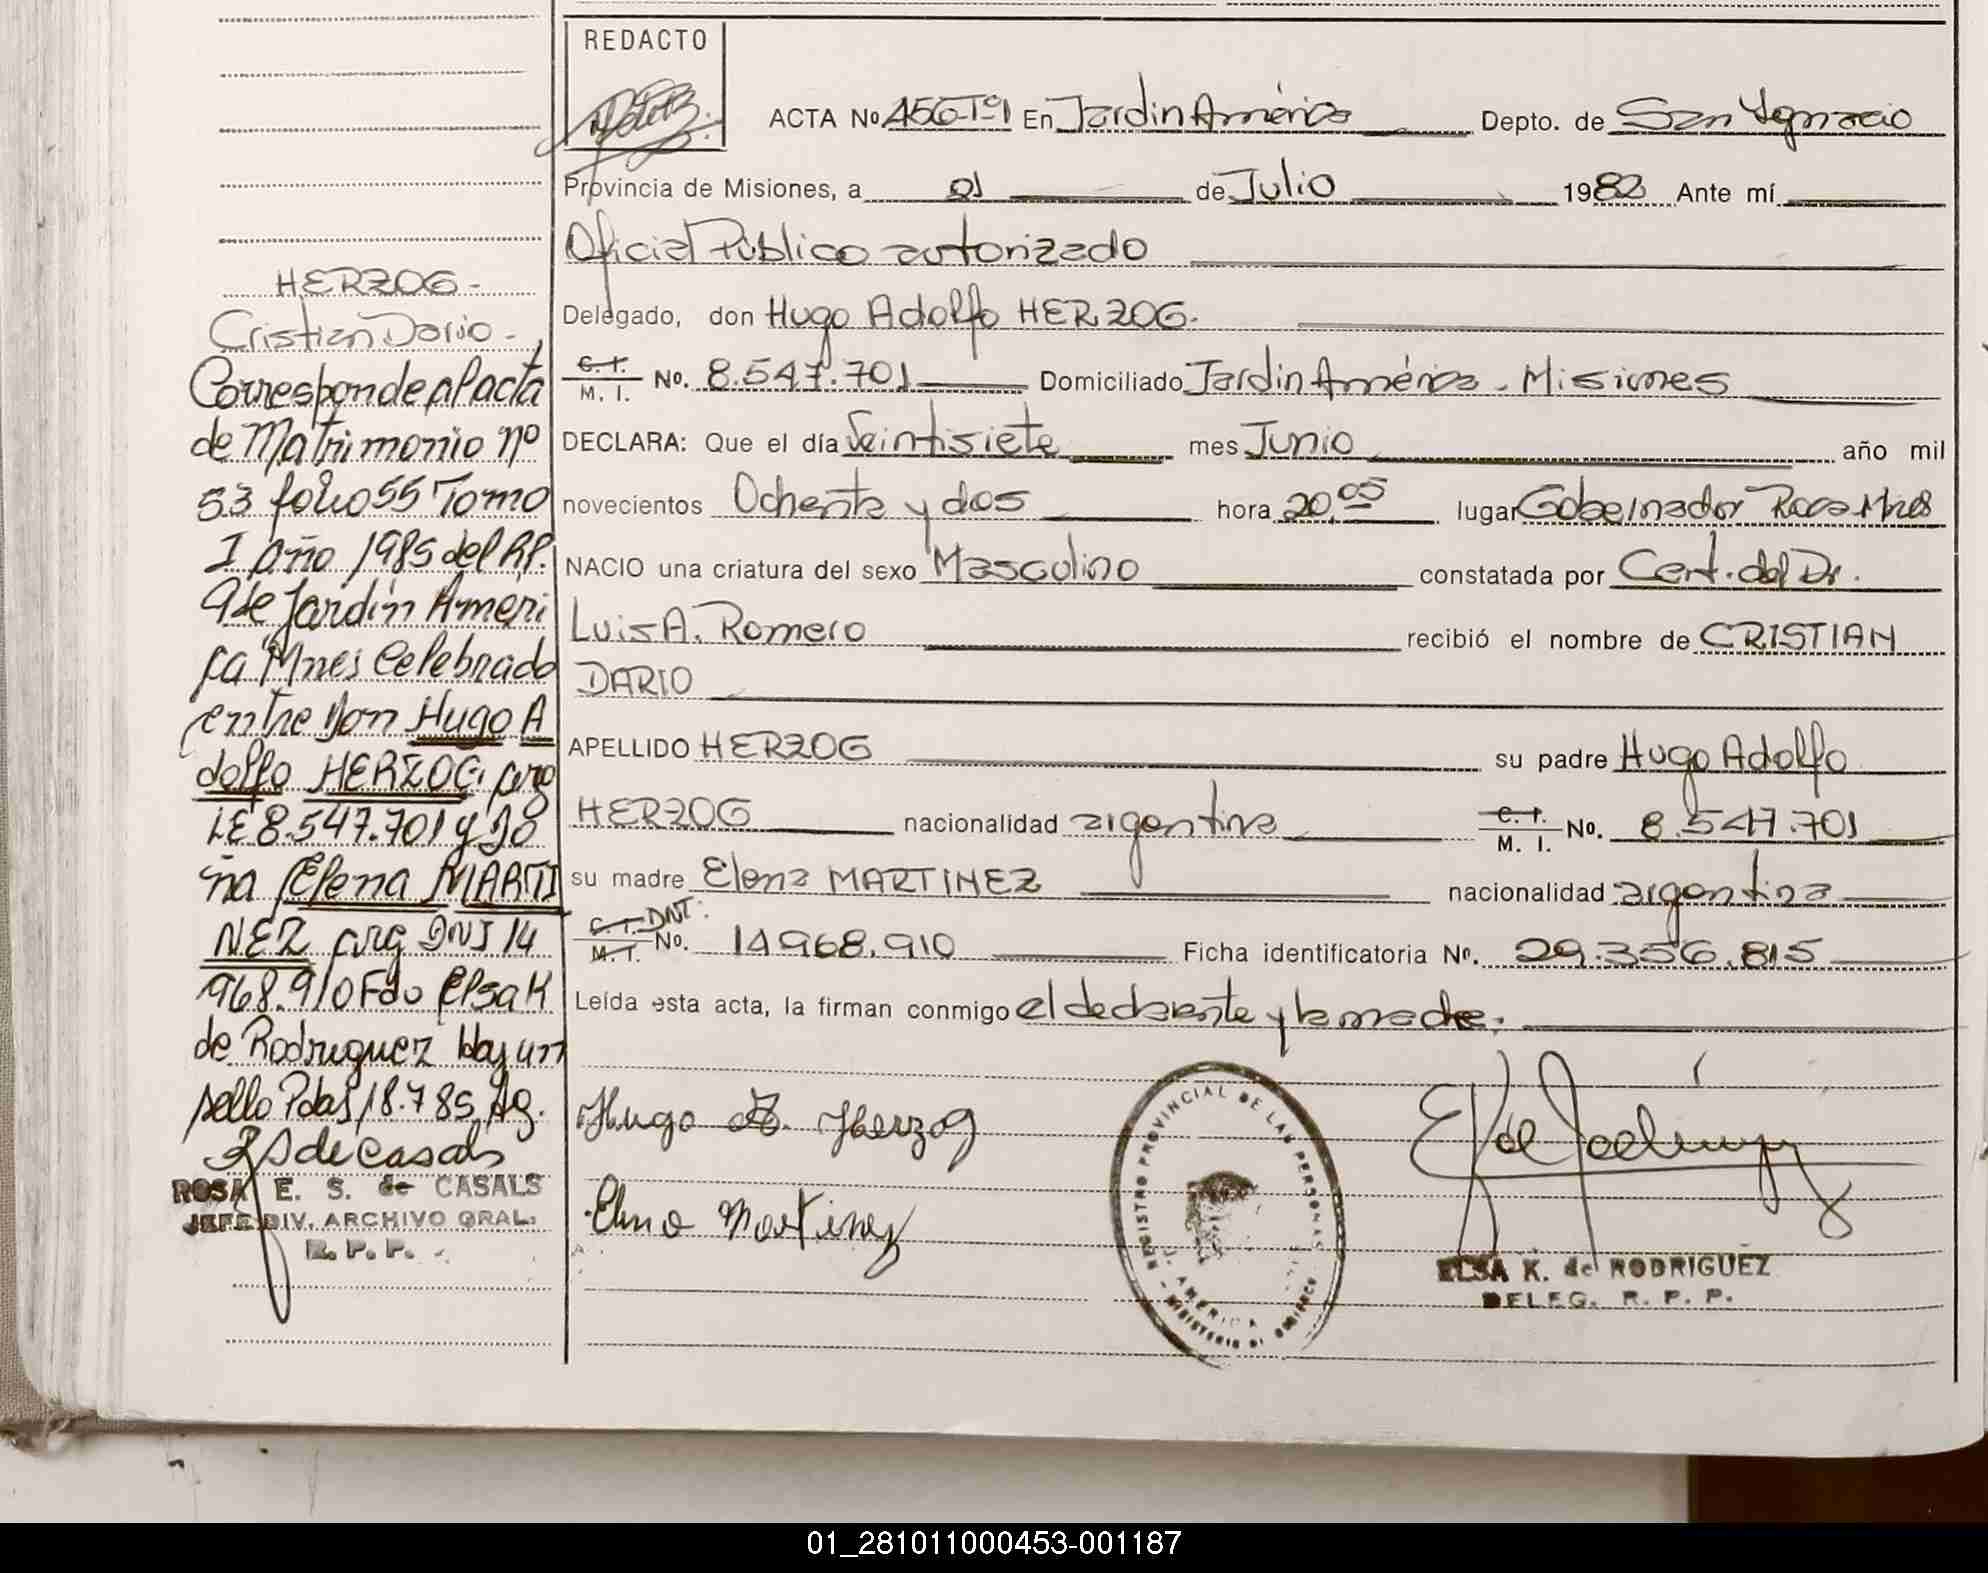 REDACTO
ACTA Nº 456-Tº1 En Jardin América Depto. de San Ignacio
Provincia de Misiones, a 01 de Julio 1982 Ante mí
Oficial Público autorizado
Delegado, don Hugo Adolfo HERZOG.
C. I. M. I. No. 8.547.701 Domiciliado Jardin América - Misiones
DECLARA: Que el día Veintisiete mes Junio año mil
novecientos Ochenta y dos hora 20,05 lugar Gobernador Roca Mnes
NACIO una criatura del sexo Masculino constatada por Cert. del Dr.
Luis A. Romero recibió el nombre de CRISTIAN
DARIO
APELLIDO HERZOG su padre Hugo Adolfo
HERZOG nacionalidad argentina C. I. M. I. No. 8.547.701
su madre Elena MARTINEZ nacionalidad argentina
C. I. M. I. DNI: No. 14968.910 Ficha identificatoria No. 29.356.815
Leída esta acta, la firman conmigo el declarante y la madre.
Hugo A. Herzog
Elena Martinez
REGISTRO PROVINCIAL DE LAS PERSONAS
J. AMERICA
- MINISTERIO DE GOBIERNO
ELSA K. de RODRIGUEZ
DELEG. R. P. P.
HERZOG-
Cristian Dario-
Corresponde al acta
de Matrimonio nº
53 folio 55 Tomo
I año 1985 del RP.
P de Jardín Améri
ca Mnes Celebrado
entre Don Hugo A
dolfo HERZOG, arg
LE 8.547.701 y Do
ña Elena MARTI
NEZ arg DNI 14
968.910 Fdo Elsa K
de Rodriguez hay un
sello Pdas 18.7 85, Ag.
RS de Casals
ROSA E. S. de CASALS
JEFE DIV. ARCHIVO GRAL.
R. P. P.
01_281011000453-001187